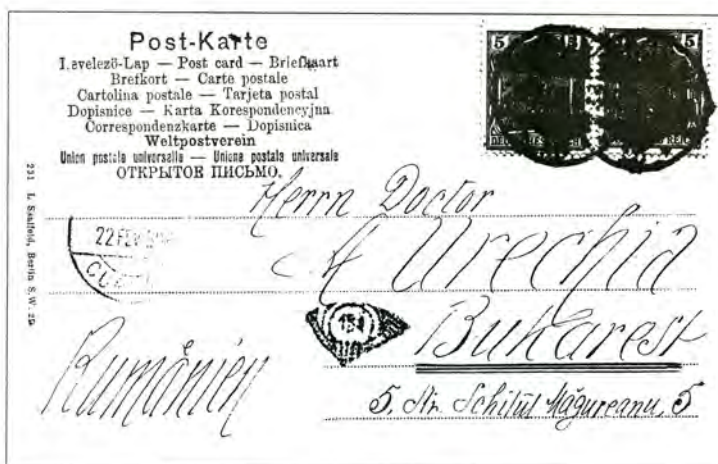 Post-Karte
Levelező-Lap — Post card — Briefkaart
Brefkort — Carte postale
Cartolina postale — Tarjeta postal
Dopisnice — Karta Korespondencyjna
Correspondenzkarte — Dopisnica
Weltpostverein
Union postale universelle — Unione postale universale
ОТКРЫТОЕ ПИСЬМО.
5 5
REICH
231 L. Saalfeld, Berlin S.W. 29
Herrn Doctor
A Urechia
22 FEV
154
Bukarest
Rumänien
5, Str. Schitul Măgureanu, 5